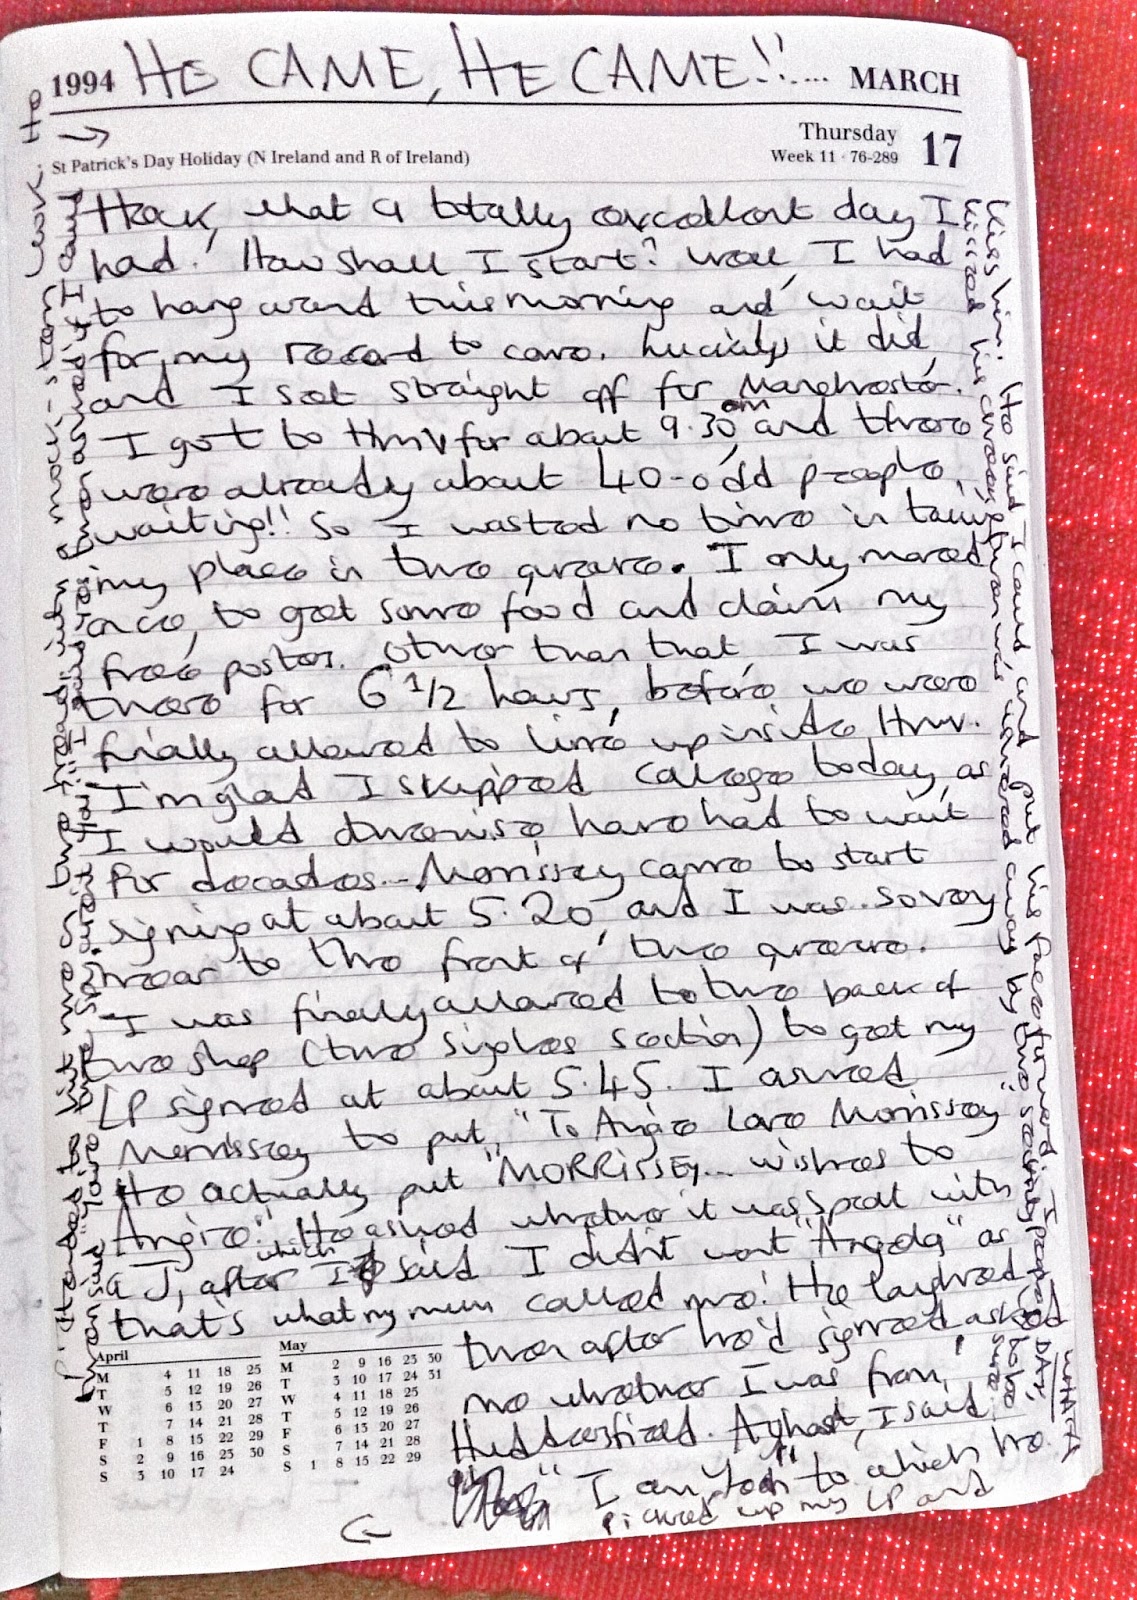 HE CAME, HE CAME!!....
1994 MARCH
Thursday
Week 11 · 76-289 17
St Patrick's Day Holiday (N Ireland and R of Ireland)
Heck, what a totally excellent day I
had! How shall I start? Well, I had
to hang around this morning and wait
for my record to come. Luckily it did,
and I set straight off for Manchester.
I got to HMV for about 9.30am and there
were already about 40-odd people
waiting!! So I wasted no time in taking
my place in the queue. I only moved
once, to get some food and claim my
free poster. Other than that, I was
there for 6 1/2 hours, before we were
finally allowed to line up inside HMV.
I'm glad I skipped college today as
I would otherwise have had to wait
for decades... Morrissey came to start
signing at about 5.20, and I was so very
near to the front of the queue.
I was finally allowed to the back of
the shop (the singles section) to get my
LP signed at about 5.45. I asked
Morrissey to put, "To Angie Love Morrissey
He actually put "MORRISSEY... wishes to
Angie." He asked whether it was spelt with
a J, after which I said I didn't want "Angela" as
that's what my mum called me! He laughed
then after he'd signed asked
me whether I was from
Huddersfield. Aghast, I said
"I am yeah" to which he
picked up my LP and
April
M 4 11 18 25
T 5 12 19 26
W 6 13 20 27
T 7 14 21 28
F 1 8 15 22 29
S 2 9 16 23 30
S 3 10 17 24
May
M 2 9 16 23 30
T 3 10 17 24 31
W 4 11 18 25
T 5 12 19 26
F 6 13 20 27
S 7 14 21 28
S 1 8 15 22 29
kiss him! He said I could and put his face forward. I
kissed his cheek then was ushered away by the security people
WHAT A
DAY,
to be
sure